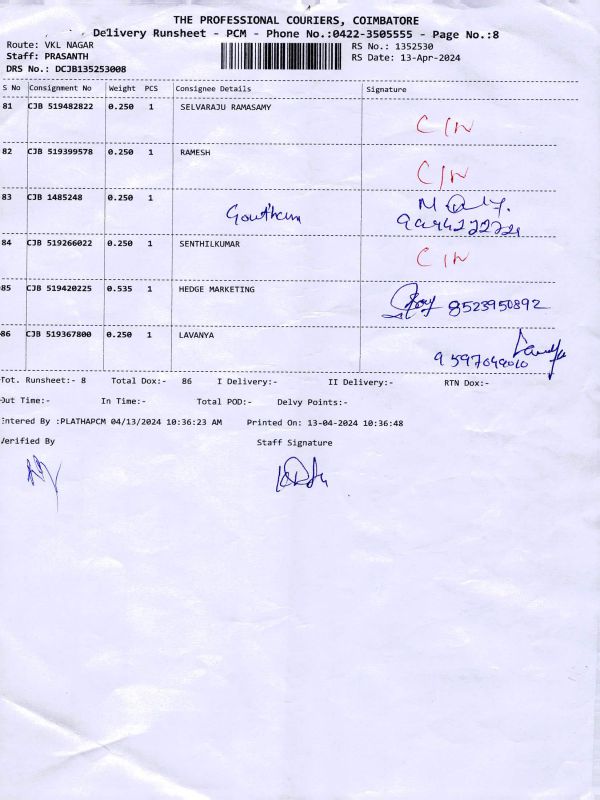 THE PROFESSIONAL COURIERS, COIMBATORE
Delivery Runsheet - PCM - Phone No.:0422-3505555 - Page No.:8
Route: VKL NAGAR RS No.: 1352530
Staff: PRASANTH RS Date: 13-Apr-2024
DRS No.: DCJB135253008
S No Consignment No Weight PCS Consignee Details Signature
81 CJB 519482822 0.250 1 SELVARAJU RAMASAMY
C/N
82 CJB 519399578 0.250 1 RAMESH
C/N
83 CJB 1485248 0.250 1
Goutham
84 CJB 519266022 0.250 1 SENTHILKUMAR
C/N
85 CJB 519420225 0.535 1 HEDGE MARKETING
8523950892
86 CJB 519367800 0.250 1 LAVANYA
Tot. Runsheet:- 8 Total Dox:- 86 I Delivery:- II Delivery:- RTN Dox:-
Out Time:- In Time:- Total POD:- Delvy Points:-
Entered By :PLATHAPCM 04/13/2024 10:36:23 AM Printed On: 13-04-2024 10:36:48
Verified By Staff Signature